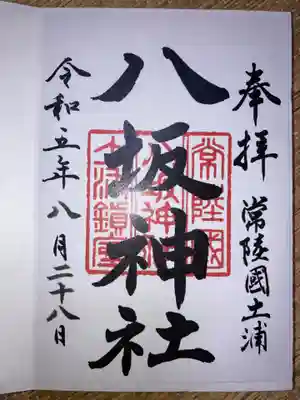 奉拝 常陸國土浦
八坂神社
令和五年八月二十八日
常陸國
土浦鎮座